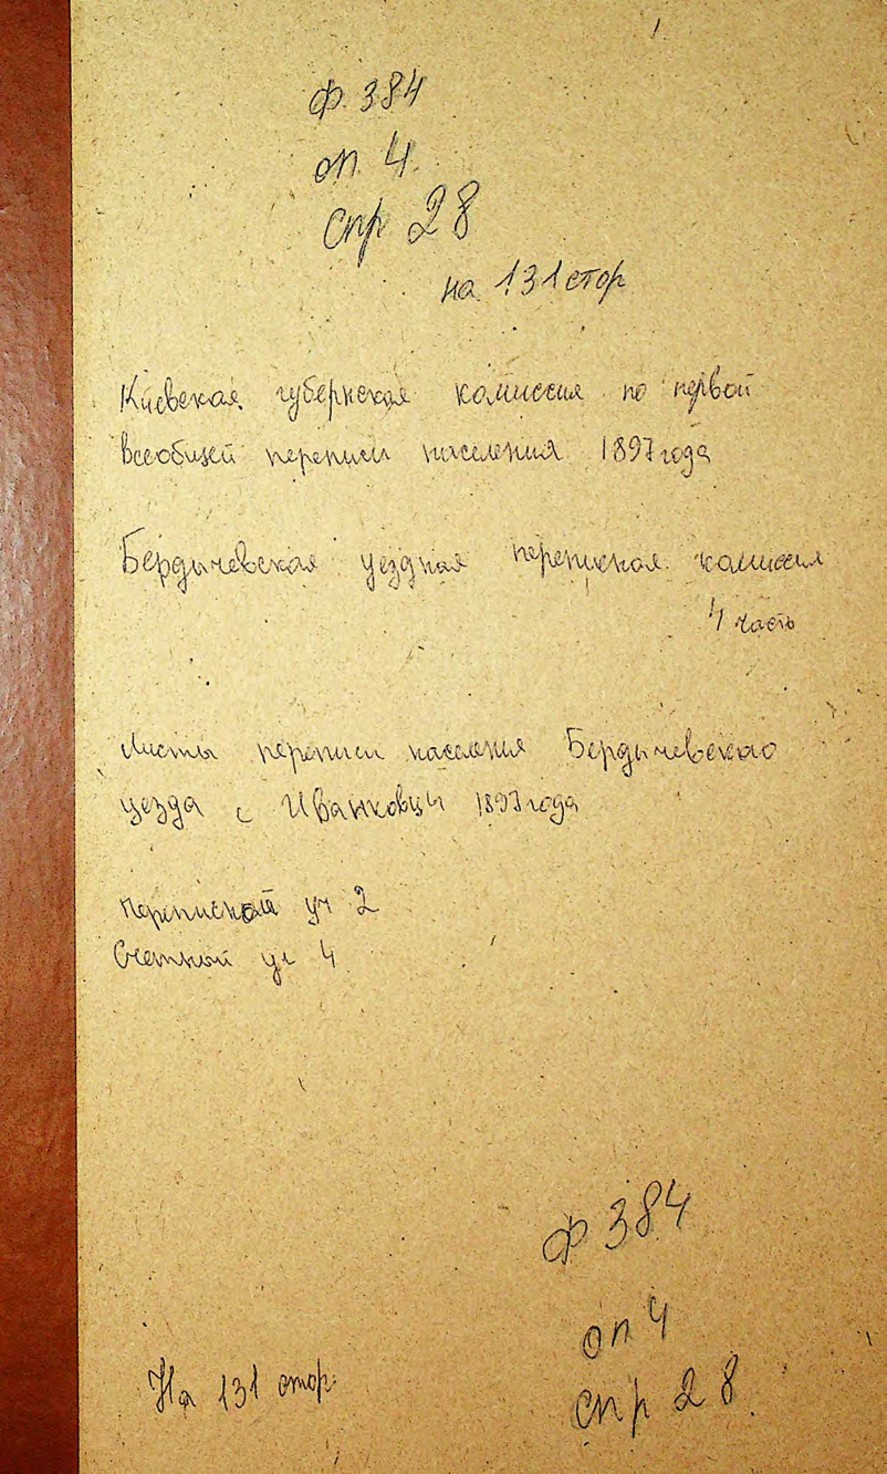 Ф. 384
оп. 4.
спр 28
на 131 стор
Киевская губернская комиссия по первой
всеобщей переписи населения 1897 года
Бердычевская уездная переписная комиссия
4 часть
Листы переписи населения Бердычевскао
уезда с Иванковцы 1897 года
переписной уч 2
Счетный уч 4
Ф 384
оп 4
На 131 стор.
спр 28.